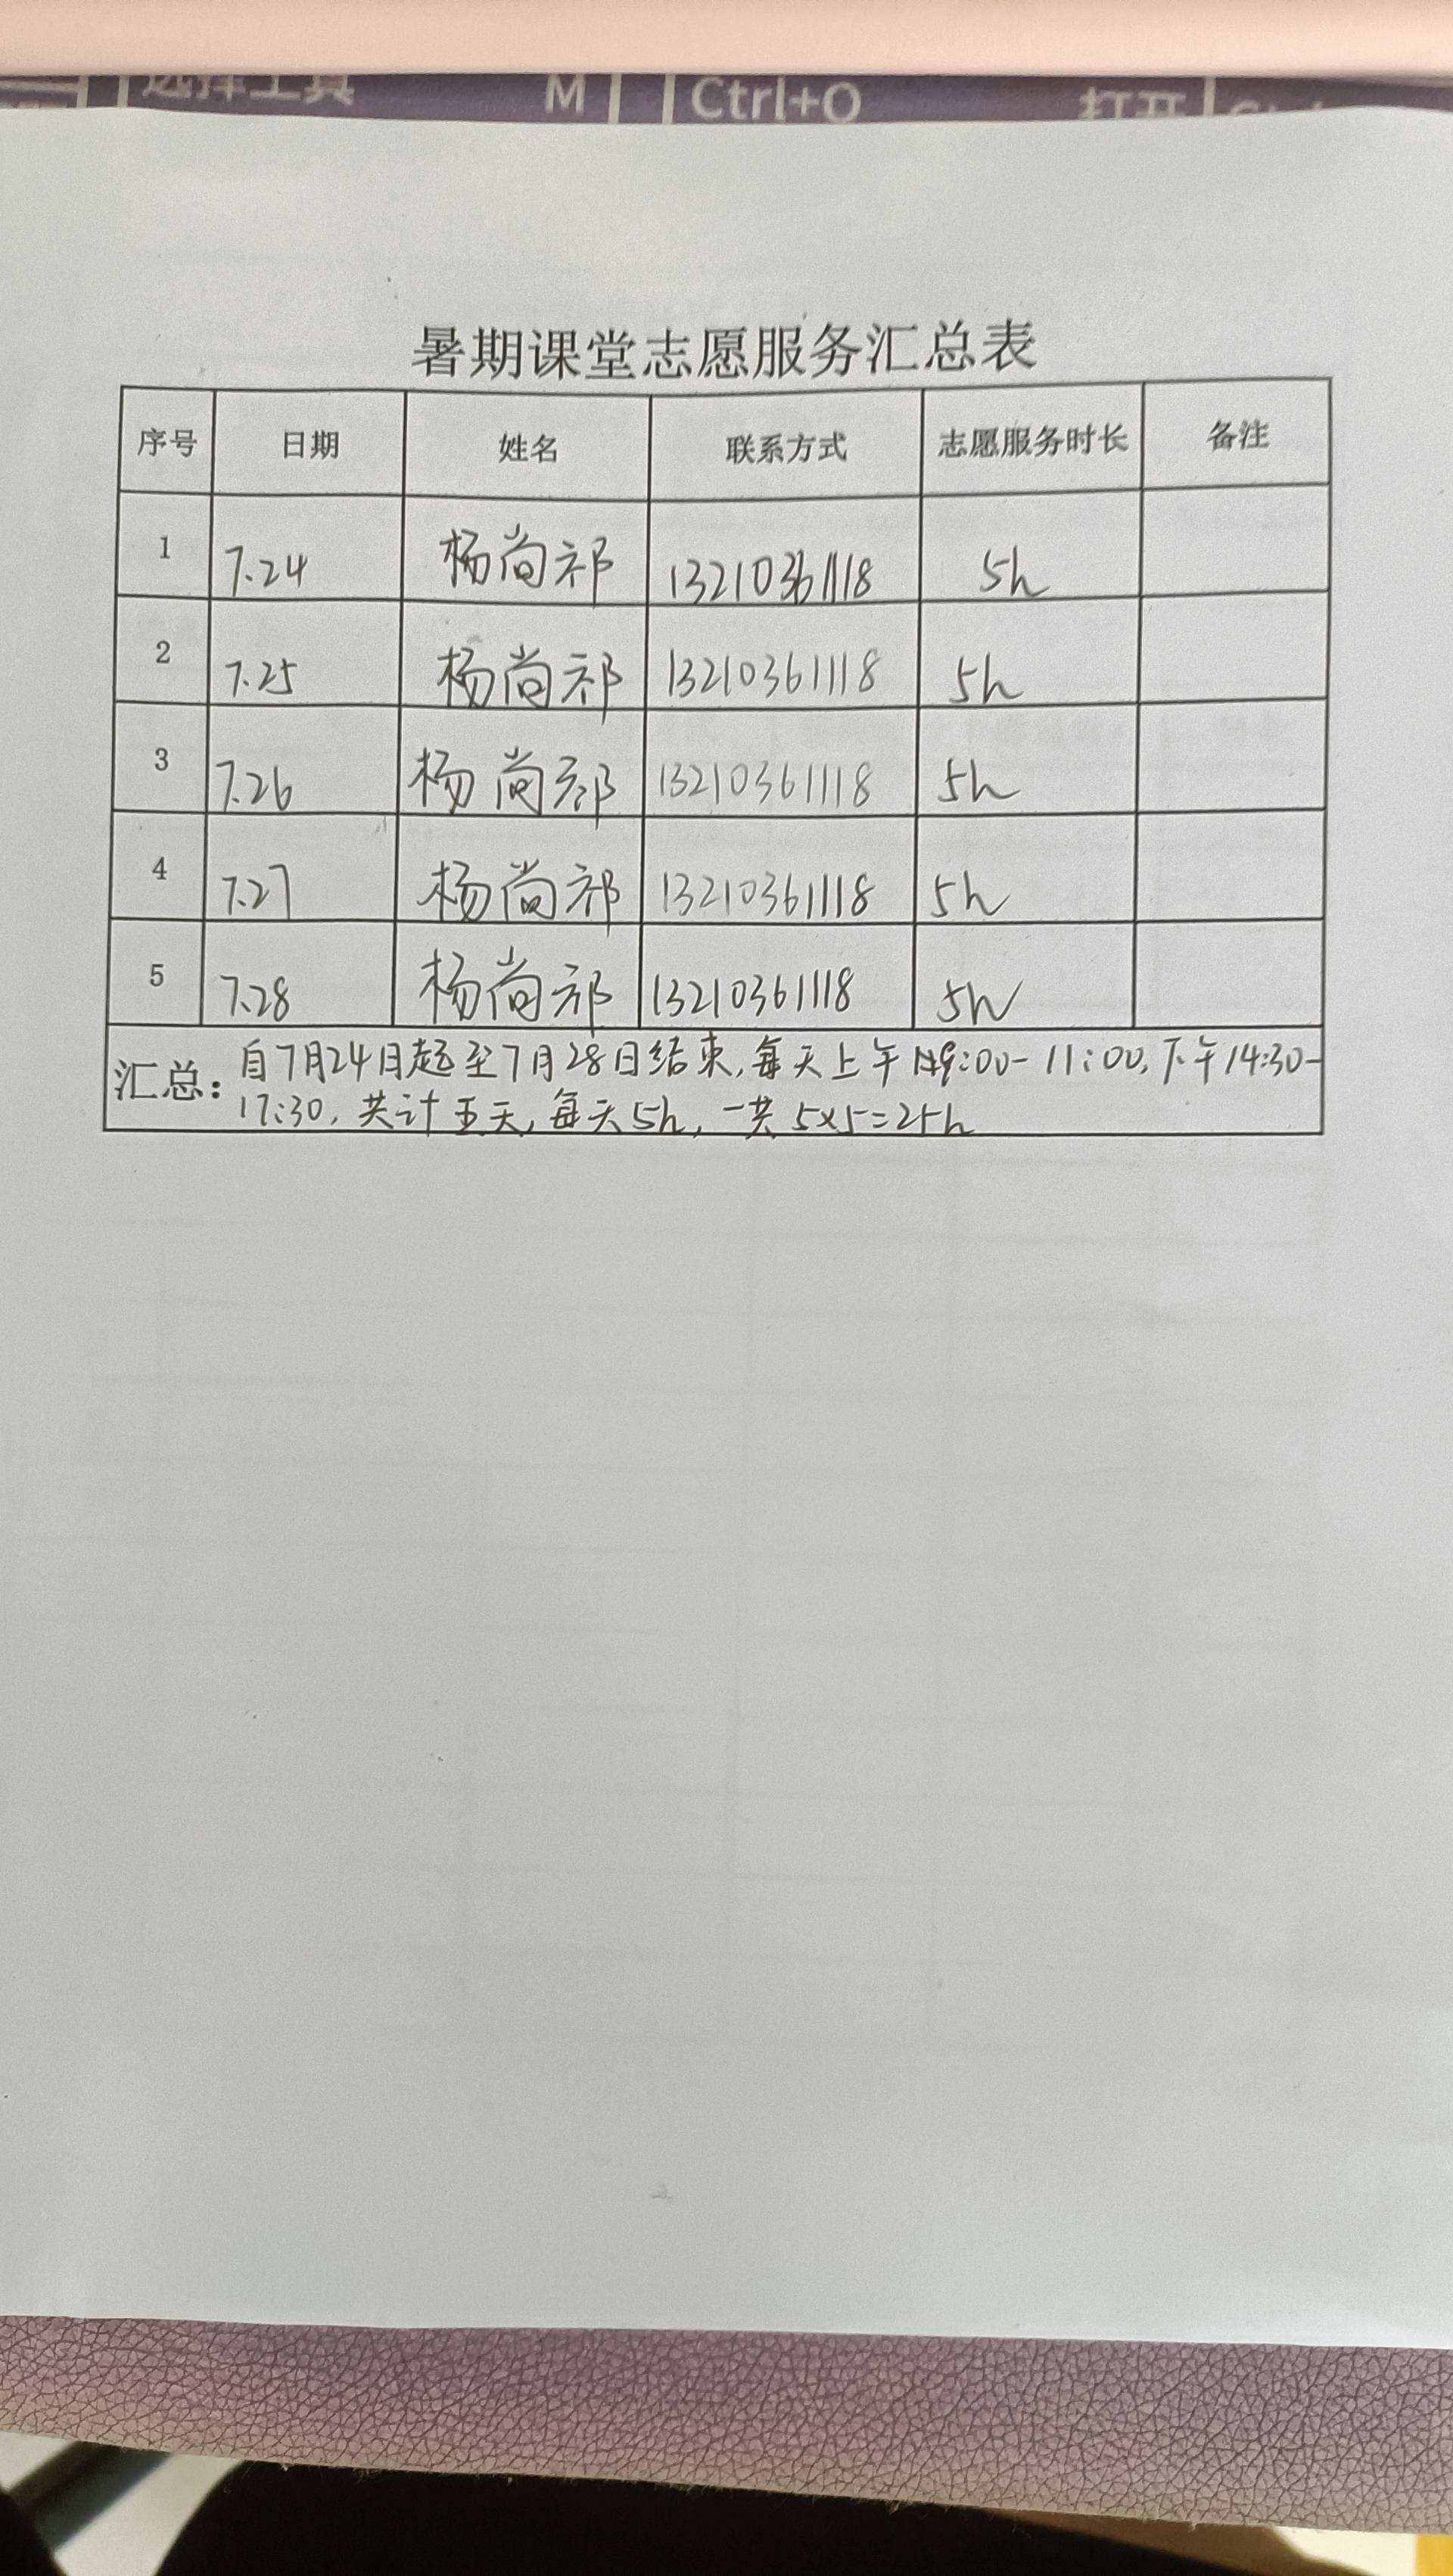 选择工具 M Ctrl+O 打开
暑期课堂志愿服务汇总表
序号 日期 姓名 联系方式 志愿服务时长 备注
1 7.24 杨尚祁 13210361118 5h
2 7.25 杨尚祁 13210361118 5h
3 7.26 杨尚祁 13210361118 5h
4 7.27 杨尚祁 13210361118 5h
5 7.28 杨尚祁 13210361118 5h
汇总: 自7月24日起至7月28日结束,每天上午9:00-11:00,下午14:30-
17:30,共计五天,每天5h,一共5×5=25h